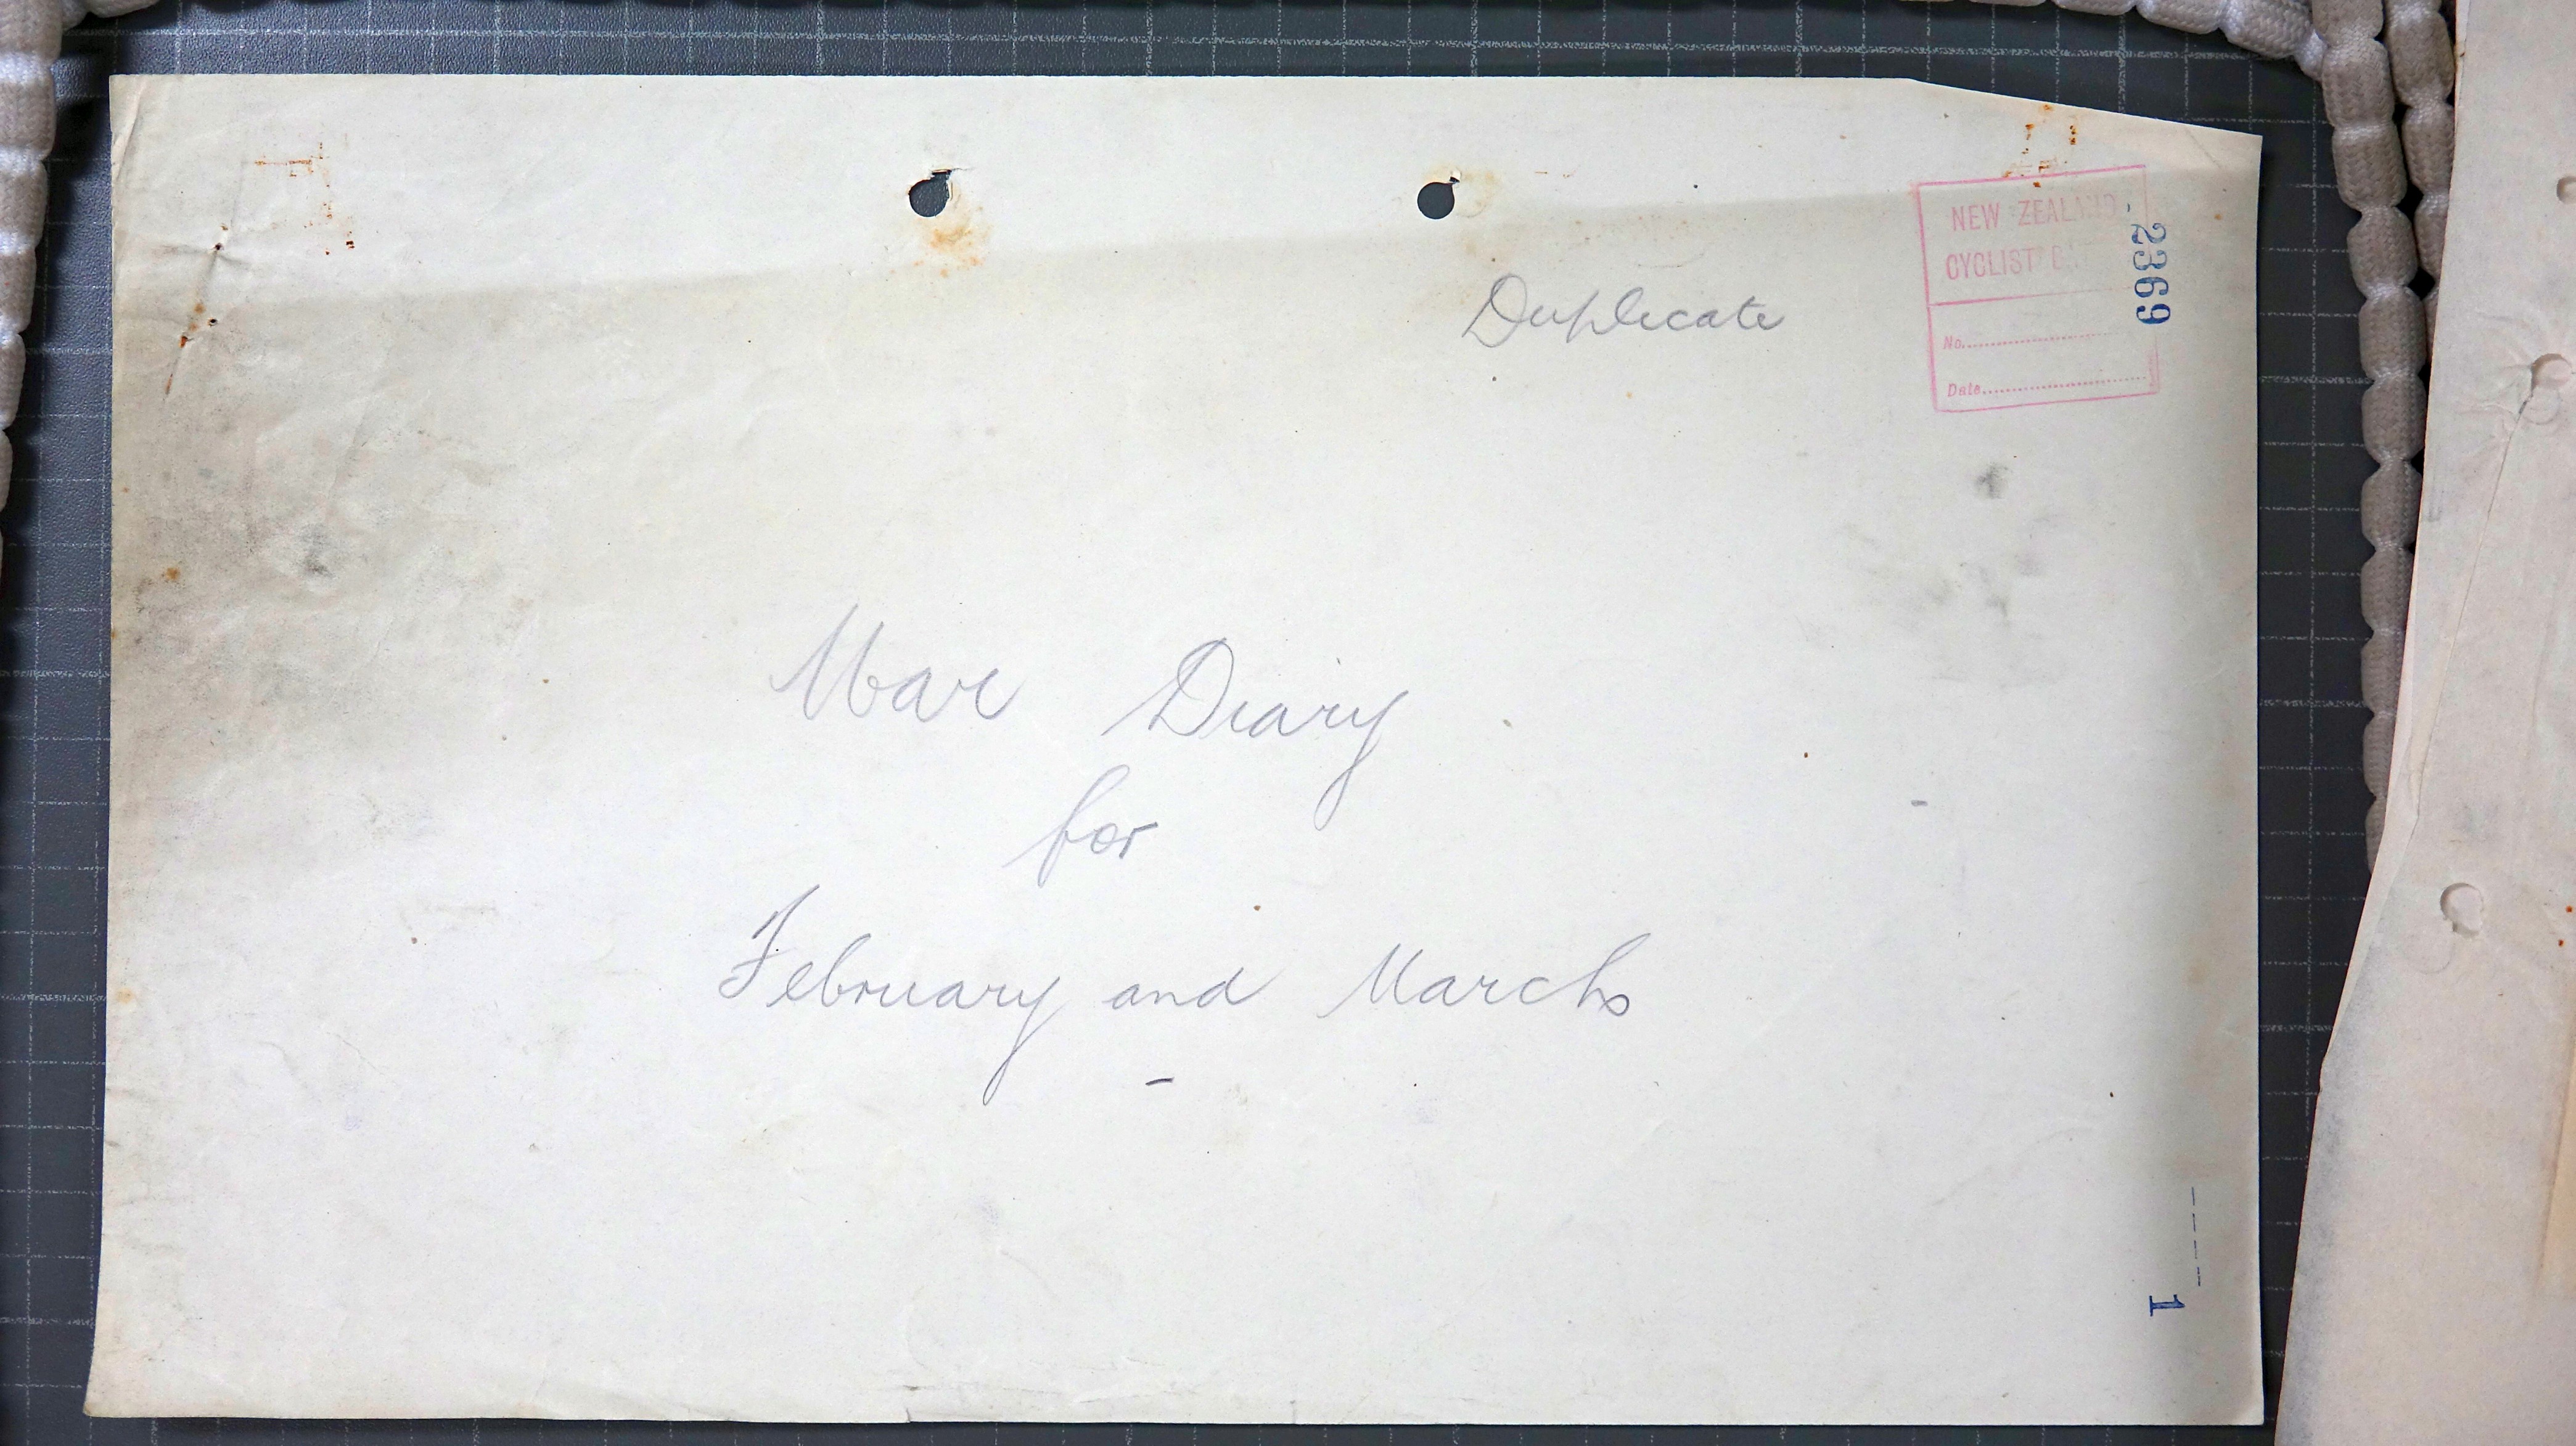 Duplicate
NEW ZEALAND
CYCLIST
No.
Date
2369
War Diary
for
February and March
1